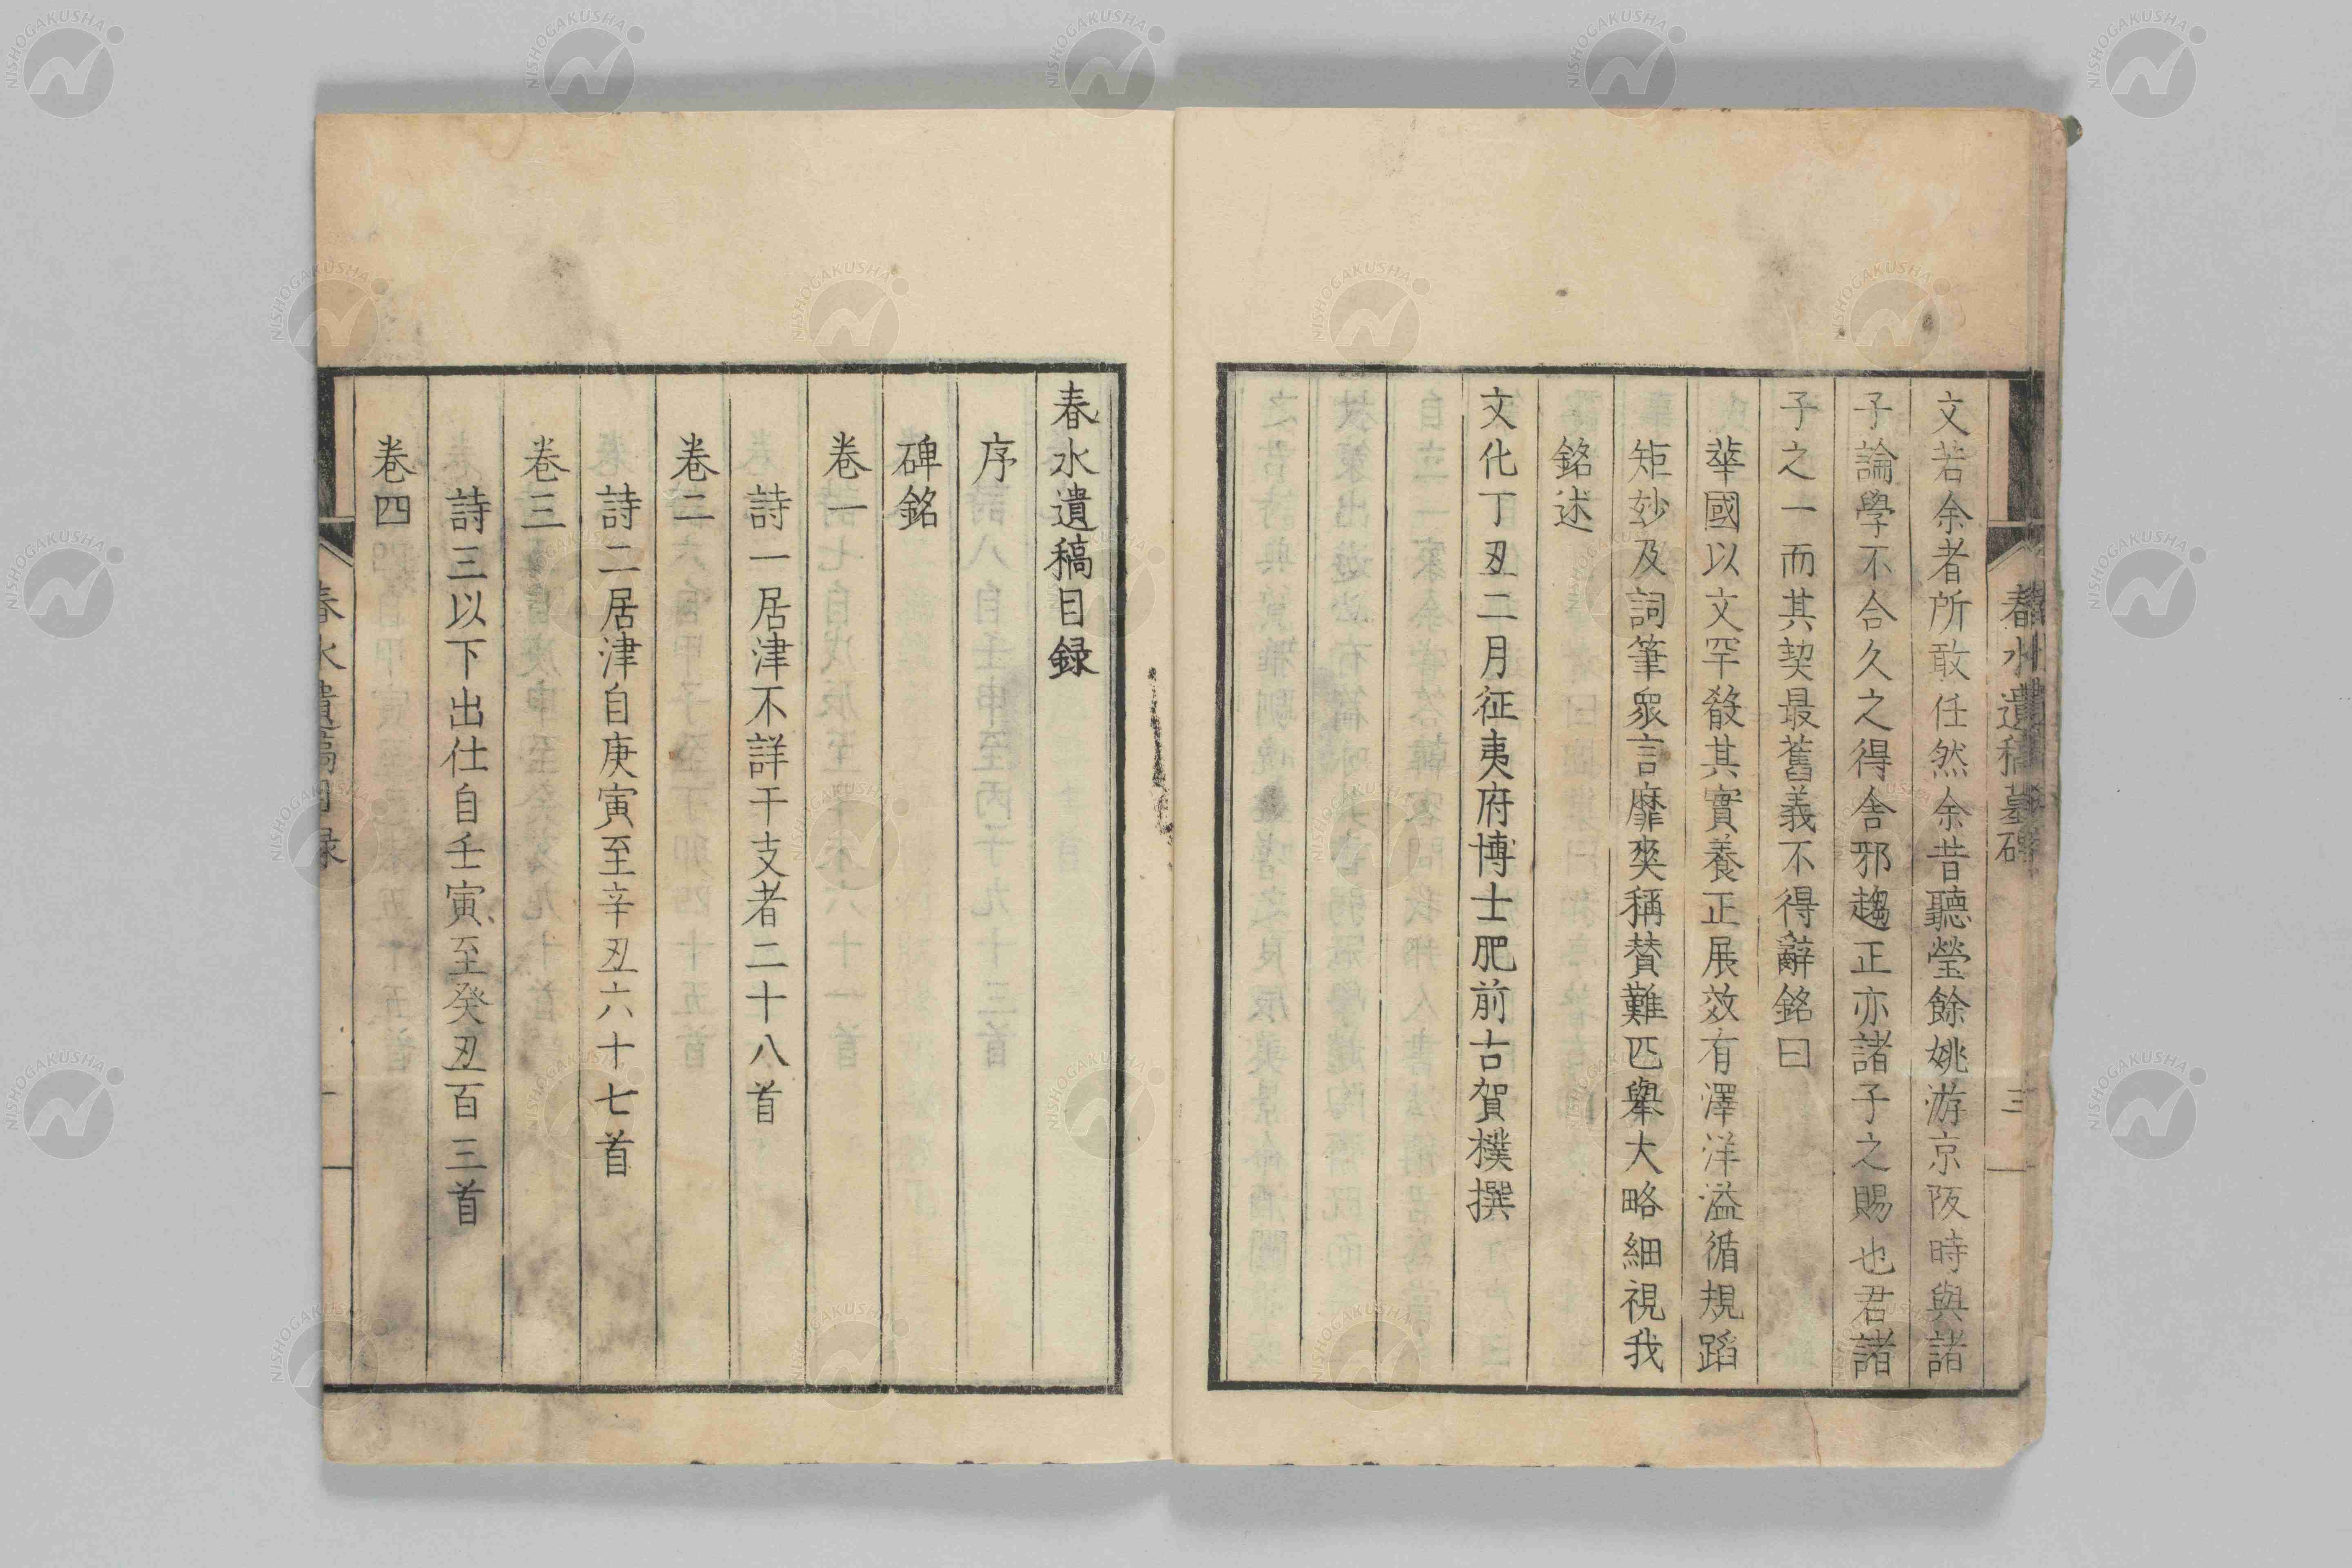 春水遺稿墓碑
三
文若余者所敢任然余昔聽瑩餘姚游京阪時與諸
子論學不合久之得舍邪趨正亦諸子之賜也君諸
子之一而其契最舊義不得辭銘曰
華國以文罕骰其實養正展效有澤洋溢循規蹈
矩妙及詞筆衆言靡爽稱賛難匹舉大略細視我
銘述
文化丁丑二月征夷府博士肥前古賀樸撰
春水遺稿目録
序
碑銘
卷一
詩一居津不詳干支者二十八首
卷二
詩二居津自庚寅至辛丑六十七首
卷三
詩三以下出仕自壬寅至癸丑百三首
卷四
春水遺稿目録
一
NISHOGAKUSHA